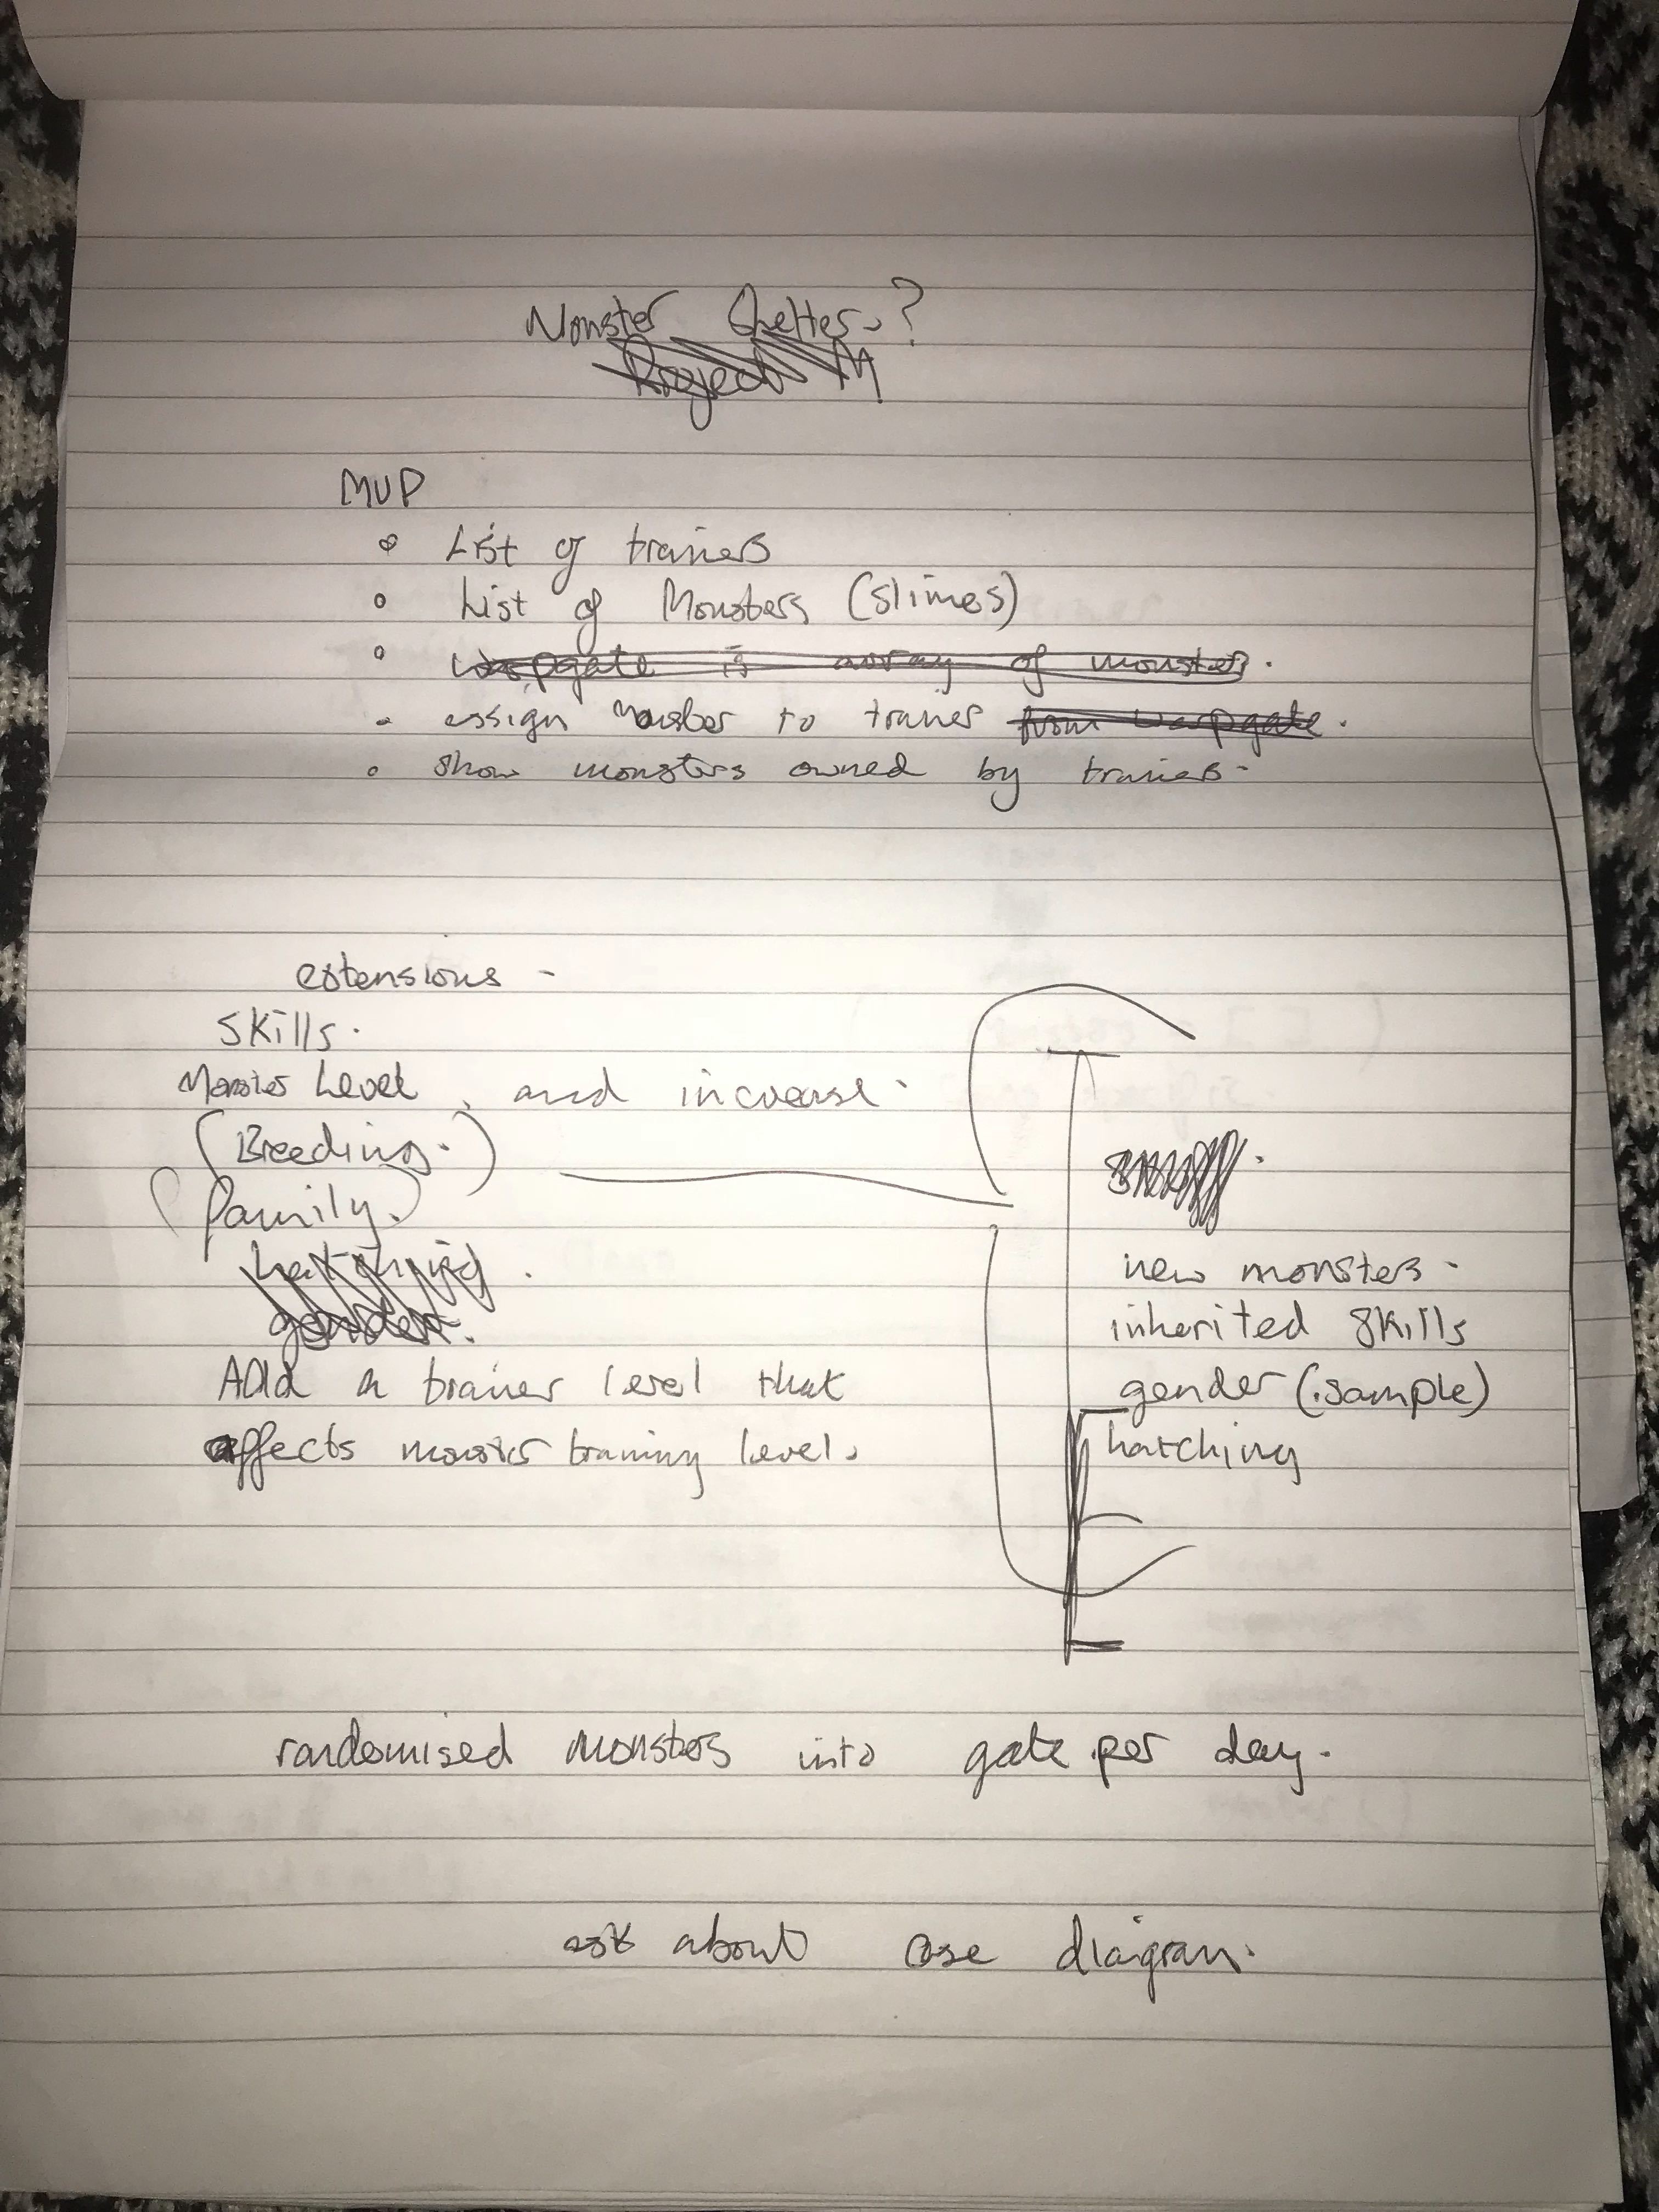 Monster Shelter.?
Project M
MVP
List of trainers
List of Monsters (slimes)
warpgate is array of monster.
assign Monster to trainer from warpgate.
show monsters owned by trainers.
extensions -
Skills.
Monster Level, and increase.
(Breeding.)
(family.)
hatching.
gender.
Add a trainer level that
affects monster training level.
new monsters.
inherited skills
gender (.sample)
hatching
randomised monsters into gate per day.
ask about case diagram.